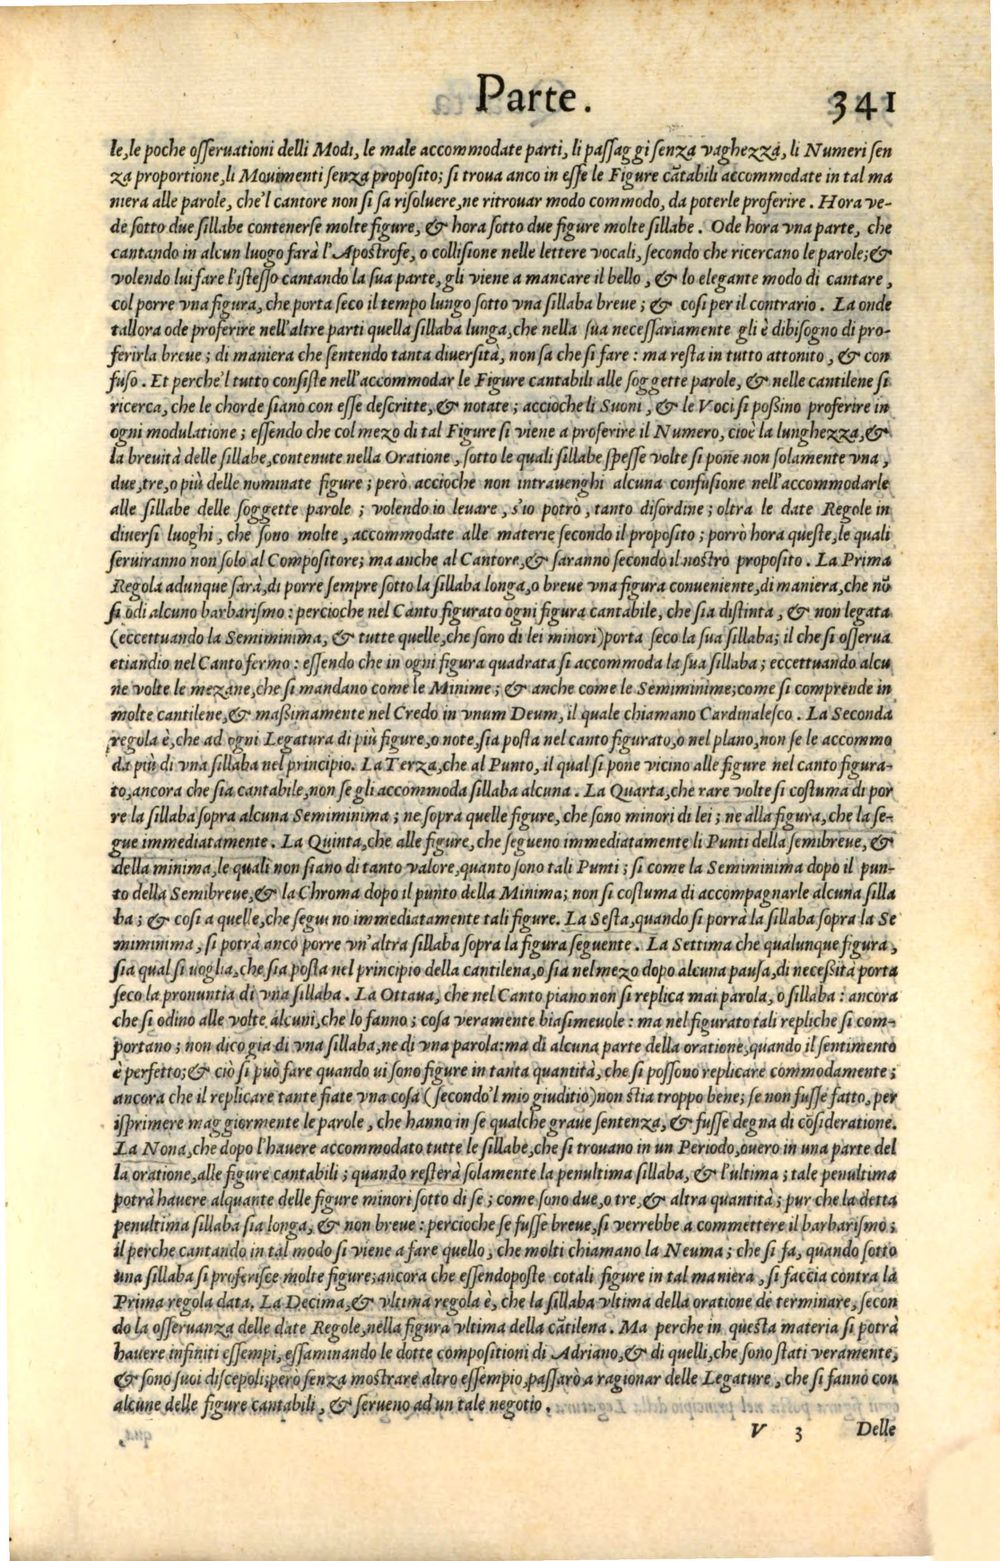 Parte. 341
le, le poche osseruationi delli Modi, le male accommodate parti, li passaggi senza vaghezza, li Numeri sen
za proportione, li Mouimenti senza proposito; si troua anco in esse le Figure cātabili accommodate in tal ma
niera alle parole, che'l cantore non si sa risoluere, ne ritrouar modo commodo, da poterle proferire. Hora ve-
de sotto due sillabe contenerse molte figure, & hora sotto due figure molte sillabe. Ode hora vna parte, che
cantando in alcun luogo farà l'Apostrofe, o collisione nelle lettere vocali, secondo che ricercano le parole; &
volendo lui fare l'istesso cantando la sua parte, gli viene a mancare il bello, & lo elegante modo di cantare,
col porre vna figura, che porta seco il tempo lungo sotto vna sillaba breue; & cosi per il contrario. La onde
tallora ode proferire nell'altre parti quella sillaba lunga, che nella sua necessariamente gli è dibisogno di pro-
ferirla breue; di maniera che sentendo tanta diuersità, non sa che si fare: ma resta in tutto attonito, & con
fuso. Et perche'l tutto consiste nell'accommodar le Figure cantabili alle soggette parole, & nelle cantilene si
ricerca, che le chorde siano con esse descritte, & notate; accioche li Suoni, & le Voci si poßino proferire in
ogni modulatione; essendo che col mezo di tal Figure si viene a proferire il Numero, cioè la lunghezza, &
la breuità delle sillabe, contenute nella Oratione, sotto le quali sillabe spesse volte si pone non solamente vna,
due, tre, o più delle nominate figure; però accioche non intrauenghi alcuna confusione nell'accommodarle
alle sillabe delle soggette parole; volendo io leuare, s'io potrò, tanto disordine; oltra le date Regole in
diuersi luoghi, che sono molte, accommodate alle materie secondo il proposito; porrò hora queste, le quali
seruiranno non solo al Compositore; ma anche al Cantore, & saranno secondo il nostro proposito. La Prima
Regola adunque sarà, di porre sempre sotto la sillaba longa, o breue vna figura conueniente, di maniera, che nō
si odi alcuno barbarismo: percioche nel Canto figurato ogni figura cantabile, che sia distinta, & non legata
(eccettuando la Semiminima, & tutte quelle, che sono di lei minori) porta seco la sua sillaba; il che si osserua
etiandio nel Canto fermo: essendo che in ogni figura quadrata si accommoda la sua sillaba; eccettuando alcu
ne volte le mezane, che si mandano come le Minime; & anche come le Semiminime; come si comprende in
molte cantilene, & maßimamente nel Credo in vnum Deum, il quale chiamano Cardinalesco. La Seconda
regola è, che ad ogni Legatura di più figure, o note, sia posta nel canto figurato, o nel plano, non se le accommo
da più di vna sillaba nel principio. La Terza, che al Punto, il qual si pone vicino alle figure nel canto figura-
to, ancora che sia cantabile, non se gli accommoda sillaba alcuna. La Quarta, che rare volte si costuma di por
re la sillaba sopra alcuna Semiminima; ne sopra quelle figure, che sono minori di lei; ne alla figura, che la se-
gue immediatamente. La Quinta, che alle figure, che segueno immediatamente li Punti della semibreue, &
della minima, le quali non siano di tanto valore, quanto sono tali Punti; si come la Semiminima dopo il pun-
to della Semibreue, & la Chroma dopo il punto della Minima; non si costuma di accompagnarle alcuna silla
ba; & cosi a quelle, che segui no immediatamente tali figure. La Sesta, quando si porrà la sillaba sopra la Se
miminima, si potrà anco porre vn'altra sillaba sopra la figura seguente. La Settima che qualunque figura,
sia qual si uoglia, che sia posta nel principio della cantilena, o sia nel mezo dopo alcuna pausa, di neceßità porta
seco la pronuntia di vna sillaba. La Ottaua, che nel Canto piano non si replica mai parola, o sillaba: ancora
che si odino alle volte alcuni, che lo fanno; cosa veramente biasimeuole: ma nel figurato tali repliche si com-
portano; non dico gia di vna sillaba, ne di vna parola: ma di alcuna parte della oratione, quando il sentimento
è perfetto; & ciò si può fare quando ui sono figure in tanta quantità, che si possono replicare commodamente;
ancora che il replicare tante fiate vna cosa (secondo'l mio giuditio) non stia troppo bene; se non fusse fatto, per
isprimere maggiormente le parole, che hanno in se qualche graue sentenza, & fusse degna di cōsideratione.
La Nona, che dopo l'hauere accommodato tutte le sillabe, che si trouano in un Periodo, ouero in una parte del
la oratione, alle figure cantabili; quando resterà solamente la penultima sillaba, & l'ultima; tale penultima
potrà hauere alquante delle figure minori sotto di se; come sono due, o tre, & altra quantità; pur che la detta
penultima sillaba sia longa, & non breue: percioche se fusse breue, si verrebbe a commettere il barbarismo;
il perche cantando in tal modo si viene a fare quello, che molti chiamano la Neuma; che si fa, quando sotto
una sillaba si proferisce molte figure; ancora che essendo poste cotali figure in tal maniera, si faccia contra la
Prima regola data. La Decima, & vltima regola è, che la sillaba vltima della oratione de terminare, secon
do la osseruanza delle date Regole, nella figura vltima della cātilena. Ma perche in questa materia si potrà
hauere infiniti essempi, essaminando le dotte compositioni di Adriano, & di quelli, che sono stati veramente,
& sono suoi discepoli; però senza mostrare altro essempio, passarò a ragionar delle Legature, che si fanno con
alcune delle figure cantabili, & serueno ad un tale negotio.
V 3 Delle